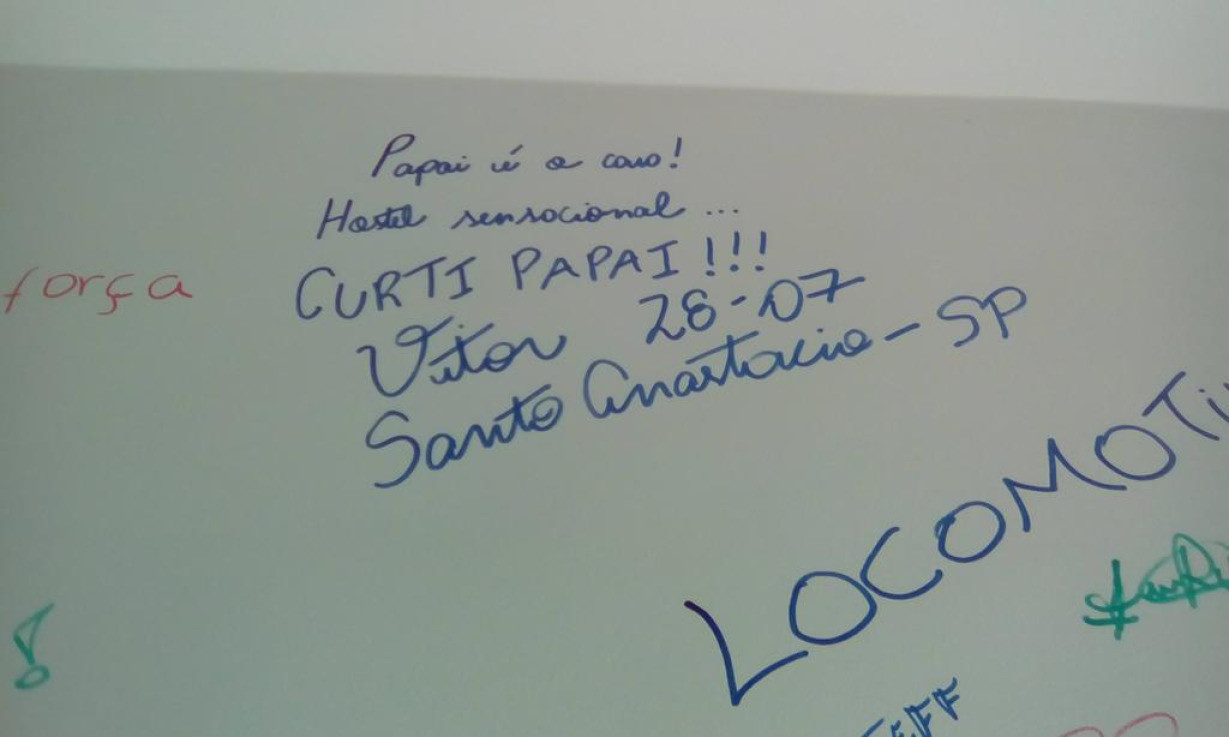 Papai é o caso!
Hostel sensacional ...
CURTI PAPAI !!!
força
Vitor 28-07
Santo Anastacio - SP
LOCOMOTI